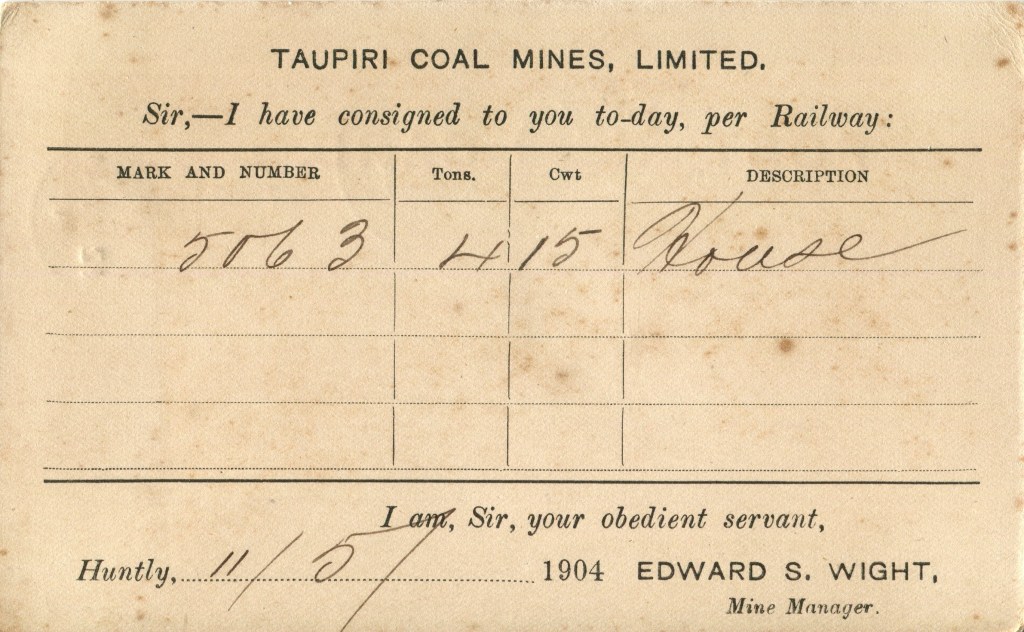 TAUPIRI COAL MINES, LIMITED.
Sir,—I have consigned to you to-day, per Railway:
MARK AND NUMBER Tons. Cwt DESCRIPTION
5063 4 15 House
I am, Sir, your obedient servant,
Huntly, 11/5/ 1904 EDWARD S. WIGHT,
Mine Manager.